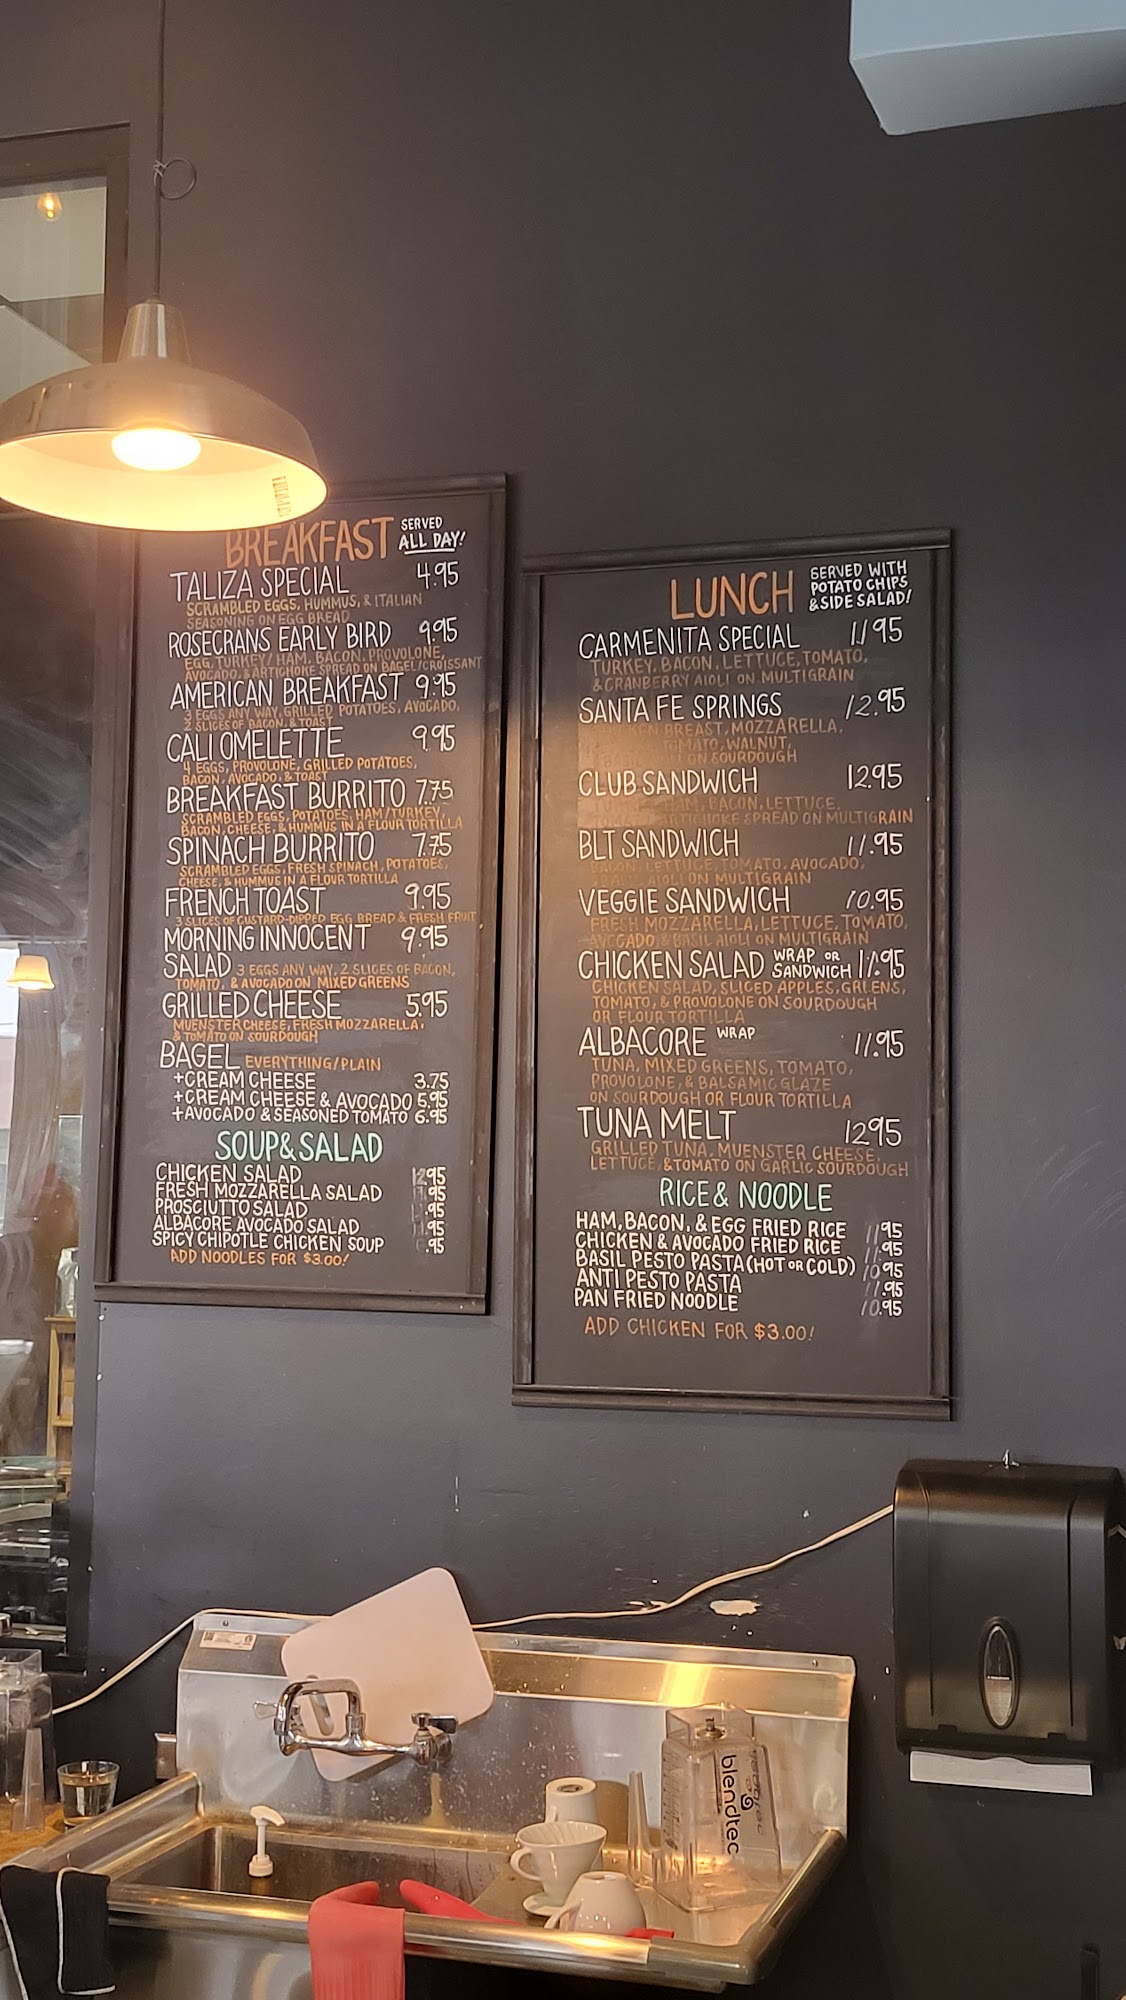 BREAKFAST SERVED
ALL DAY!
TALIZA SPECIAL 4.95
SCRAMBLED EGGS, HUMMUS, & ITALIAN
SEASONING ON EGG BREAD
ROSECRANS EARLY BIRD 9.95
EGG, TURKEY/HAM, BACON, PROVOLONE,
AVOCADO, & ARTICHOKE SPREAD ON BAGEL/CROISSANT
AMERICAN BREAKFAST 9.95
3 EGGS ANY WAY, GRILLED POTATOES, AVOCADO,
2 SLICES OF BACON, & TOAST
CALI OMELETTE 9.95
4 EGGS, PROVOLONE, GRILLED POTATOES,
BACON, AVOCADO, & TOAST
BREAKFAST BURRITO 7.75
SCRAMBLED EGGS, POTATOES, HAM/TURKEY,
BACON, CHEESE, & HUMMUS IN A FLOUR TORTILLA
SPINACH BURRITO 7.75
SCRAMBLED EGGS, FRESH SPINACH, POTATOES,
CHEESE, & HUMMUS IN A FLOUR TORTILLA
FRENCH TOAST 9.95
3 SLICES OF CUSTARD-DIPPED EGG BREAD & FRESH FRUIT
MORNING INNOCENT 9.95
SALAD 3 EGGS ANY WAY, 2 SLICES OF BACON,
TOMATO, & AVOCADO ON MIXED GREENS
GRILLED CHEESE 5.95
MUENSTER CHEESE, FRESH MOZZARELLA,
& TOMATO ON SOURDOUGH
BAGEL EVERYTHING/PLAIN
+CREAM CHEESE 3.75
+CREAM CHEESE & AVOCADO 5.95
+AVOCADO & SEASONED TOMATO 6.95
SOUP&SALAD
CHICKEN SALAD 12.95
FRESH MOZZARELLA SALAD .95
PROSCIUTTO SALAD .95
ALBACORE AVOCADO SALAD .95
SPICY CHIPOTLE CHICKEN SOUP .95
ADD NOODLES FOR $3.00!
LUNCH SERVED WITH
POTATO CHIPS
& SIDE SALAD!
CARMENITA SPECIAL 11.95
TURKEY, BACON, LETTUCE, TOMATO,
& CRANBERRY AIOLI ON MULTIGRAIN
SANTA FE SPRINGS 12.95
BREAST, MOZZARELLA,
TOMATO, WALNUT,
ON SOURDOUGH
CLUB SANDWICH 12.95
HAM, BACON, LETTUCE,
ARTICHOKE SPREAD ON MULTIGRAIN
BLT SANDWICH 11.95
BACON, LETTUCE, TOMATO, AVOCADO,
AIOLI ON MULTIGRAIN
VEGGIE SANDWICH 10.95
FRESH MOZZARELLA, LETTUCE, TOMATO,
AVOCADO, & BASIL AIOLI ON MULTIGRAIN
CHICKEN SALAD WRAP OR
SANDWICH 11.95
CHICKEN SALAD, SLICED APPLES, GREENS,
TOMATO, & PROVOLONE ON SOURDOUGH
OR FLOUR TORTILLA
ALBACORE WRAP 11.95
TUNA, MIXED GREENS, TOMATO,
PROVOLONE, & BALSAMIC GLAZE
ON SOURDOUGH OR FLOUR TORTILLA
TUNA MELT 12.95
GRILLED TUNA, MUENSTER CHEESE,
LETTUCE, & TOMATO ON GARLIC SOURDOUGH
RICE & NOODLE
HAM, BACON, & EGG FRIED RICE 11.95
CHICKEN & AVOCADO FRIED RICE 11.95
BASIL PESTO PASTA (HOT OR COLD) 10.95
ANTI PESTO PASTA 11.95
PAN FRIED NOODLE 10.95
ADD CHICKEN FOR $3.00!
blendtec